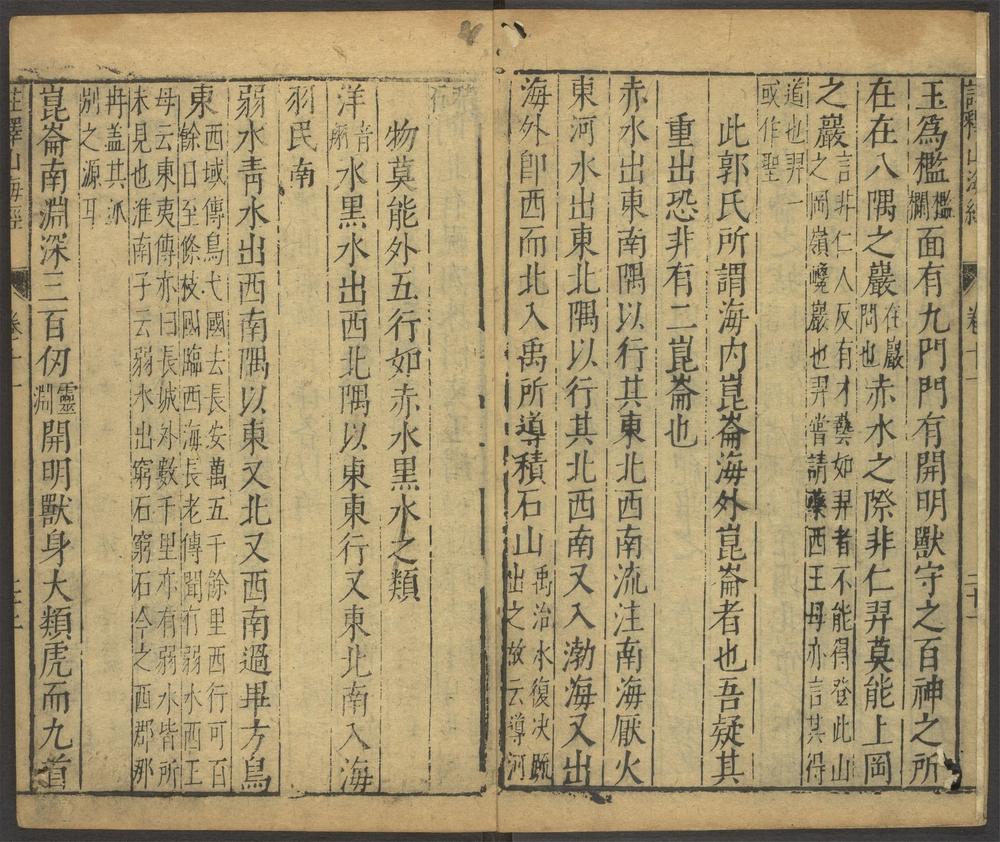 註釋山海經 卷十一 二十一
玉爲檻檻欄面有九門門有開明獸守之百神之所
在在八隅之巖在巖間也赤水之際非仁羿莫能上岡
之巖言非仁人反有才藝如羿者不能得登此山
之岡嶺巉巖也羿嘗請藥西王母亦言其得
道也羿一
或作聖
此郭氏所謂海内崑崙海外崑崙者也吾疑其
重出恐非有二崑崙也
赤水出東南隅以行其東北西南流注南海厭火
東河水出東北隅以行其北西南又入渤海又出
海外卽西而北入禹所導積石山禹治水復决䟽
出之故云導河
物莫能外五行如赤水黑水之類
洋音翔水黑水出西北隅以東東行又東北南入海
羽民南
弱水靑水出西南隅以東又北又西南過畢方鳥
東西域傳鳥弋國去長安萬五千餘里西行可百
餘日至條枝國臨西海長老傳聞有弱水西王
母云東夷傳亦曰長城外數千里亦有弱水皆所
未見也淮南子云弱水出窮石窮石今之西郡那
冉盖其派
別之源耳
崑崙南淵深三百仞靈淵開明獸身大類虎而九首
註釋山海經 卷十一